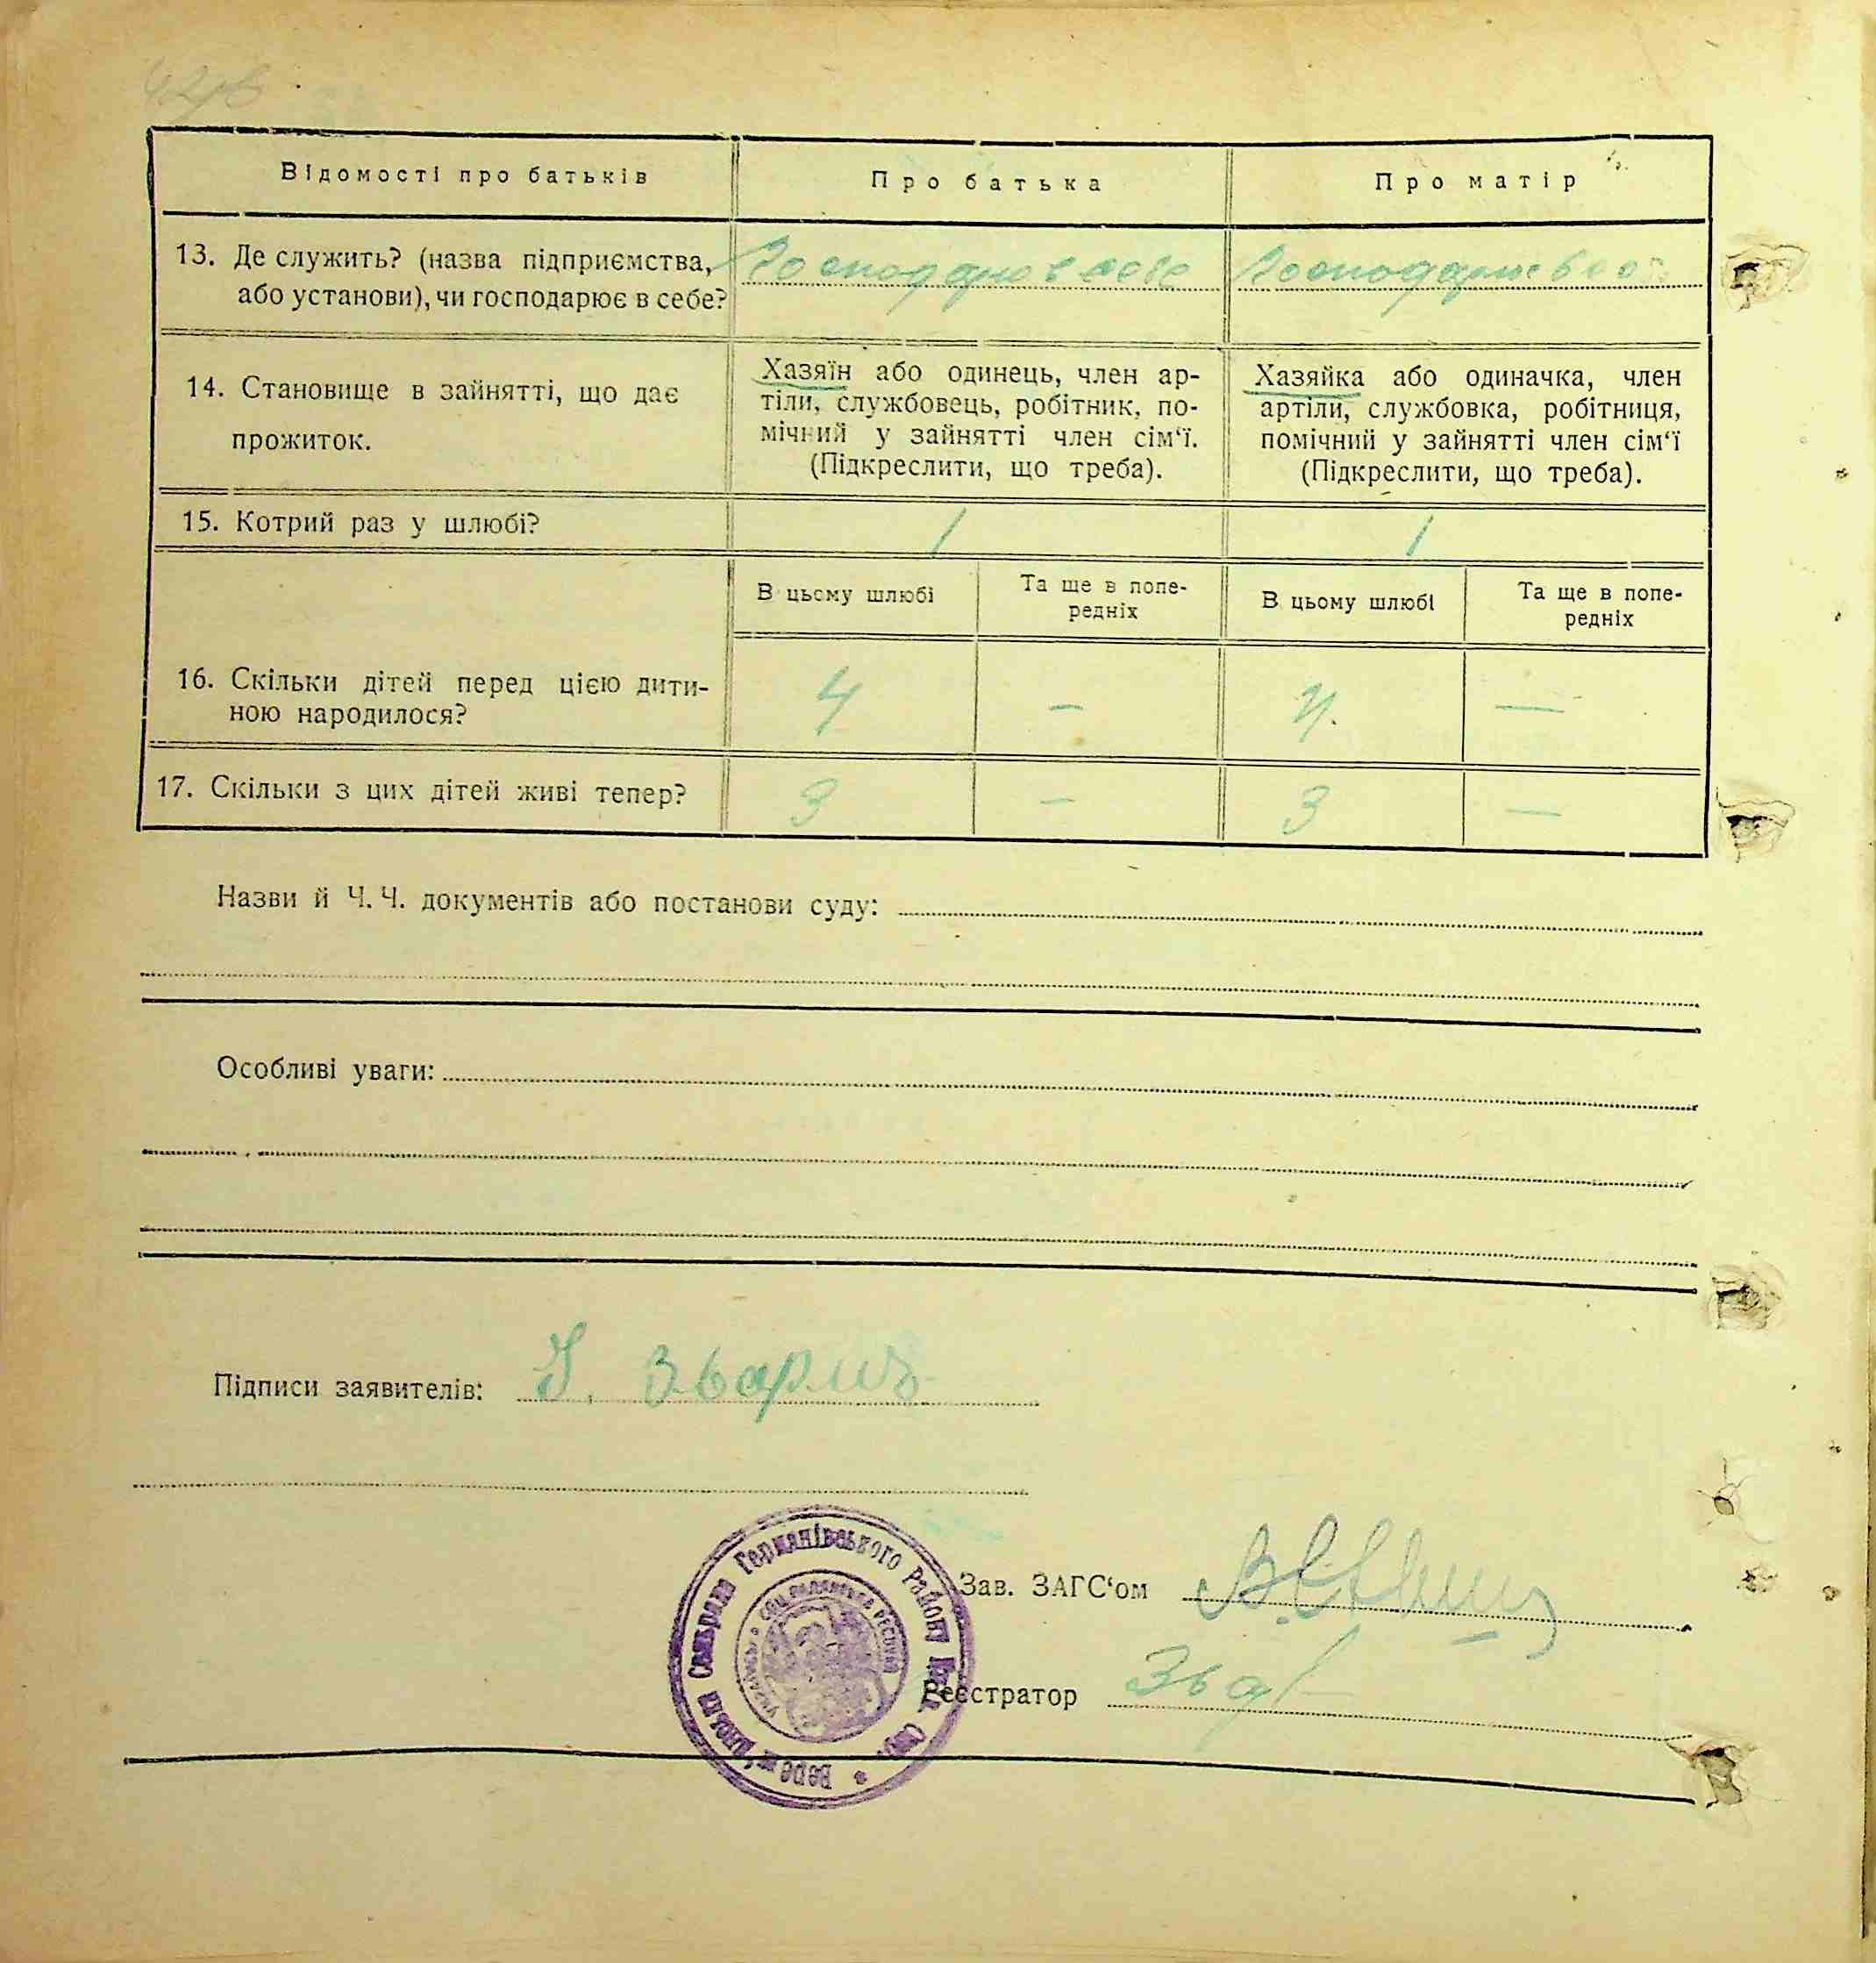 Відомості про батьків
Про батька
Про матір
13. Де служить? (назва підприємства,
або установи), чи господарює в себе?
Господарює в себе
Господарює в себе
14. Становище в зайнятті, що дає
прожиток.
Хазяїн або одинець, член ар-
тіли, службовець, робітник, по-
мічний у зайнятті член сім‘ї.
(Підкреслити, що треба).
Хазяйка або одиначка, член
артіли, службовка, робітниця,
помічний у зайнятті член сім‘ї
(Підкреслити, що треба).
15. Котрий раз у шлюбі?
1
1
В цьому шлюбі
Та ще в попе-
редніх
В цьому шлюбі
Та ще в попе-
редніх
16. Скільки дітей перед цією дити-
ною народилося?
4
—
4.
—
17. Скільки з цих дітей живі тепер?
3
—
3
—
Назви й Ч. Ч. документів або постанови суду:
Особливі уваги:
Підписи заявителів:
Зав. ЗАГС‘ом
Реєстратор
Германівського Району